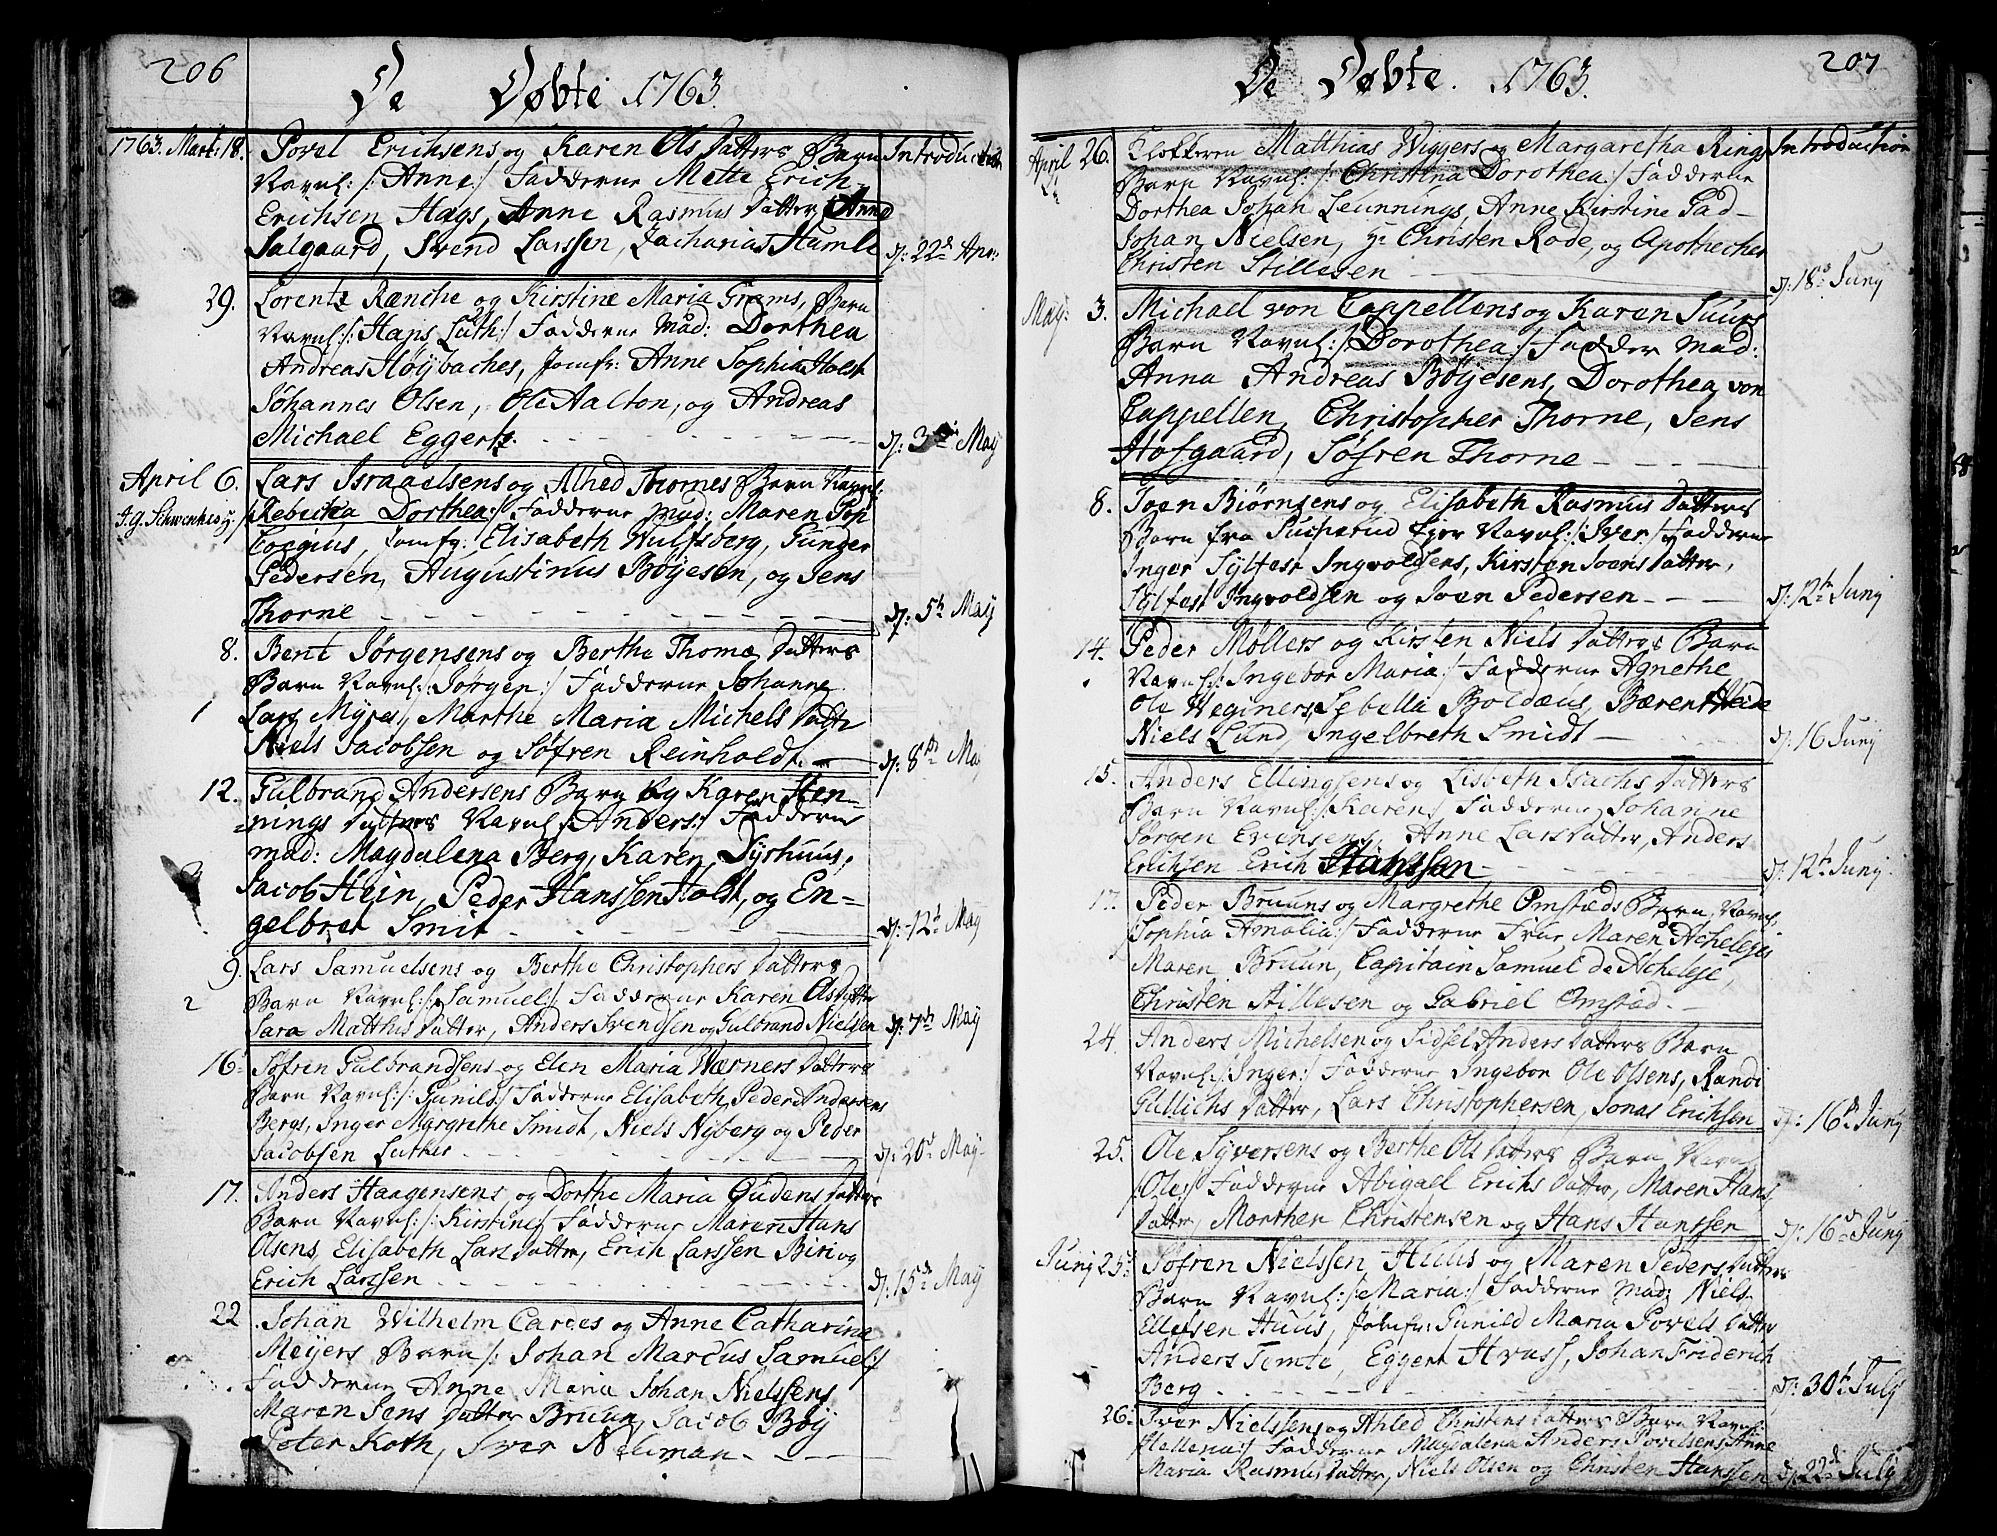 206
De Døbte 1763.
1763. Mart: 18. Povel Erichsens og Karen Ols Datters Barn Introduction
Navnl: /: Anne :/ Fadderne Mette Erich
Erichsen Hags, Anne Rasmus Datter, Anne
Salgaard, Svend Larssen, Zacharias Humle d: 22d Apr:
29. Lorentz Rænche og Kirstine Maria Grams, Barn
Navnl: /: Hans Luth :/ Fadderne Mad: Dorthea
Andreas Høybaches, Jomfr: Anne Sophia Holst
Johannes Olsen, Ole Aalton, og Andreas
Michael Eggertz. d: 3d May
April 6. Lars Israaelsens og Alhed Thornes Barn Navnl:
/: Rebecka Dorthea :/ Fadderne Mad: Maren
Coepius, Jomfr: Elisabeth Wulfsberg, Gunder
Pedersen, Augustinus Böyesen, og Jens
Thorne d: 5th May
8. Bent Jørgensens og Berthe Thomæ Datters
Barn Navnl: /: Jørgen :/ Fadderne Johanne
1 Lars Myres, Marthe Maria Michels Datter
Niels Jacobsen og Søfren Reinholdt. d: 8th May
12. Gulbrand Andersens Barn og Karen Hen-
=nings Datters Navnl /: Anders :/ Fadderne
Mad: Magdalena Berg, Karen Syrhuus,
Jacob Hein, Peder Hanssen Holst, og En-
gelbret Smit. d: 12th May
9. Lars Samuelsens og Berthe Christophers Datters
2 Barn Navnl: /: Samuel :/ Fadderne Karen Ols Datter
Sara Matthis Datter, Anders Svendsen og Gulbrand Nielsen d: 7th May
16. Søfren Gulbrandsens og Elen Maria Wærners Datters
Barn Navnl: /: Gunild :/ Fadderne Elisabeth Peder Andersens
Bergs, Inger Margrethe Smidt, Niels Nyberg og Peder
Jacobsen Luther d: 20d May
17. Anders Haagensens og Dorthe Maria Gudens Datters
Barn Navnl: /: Kirstine :/ Fadderne Maren Hans
Olsens, Elisabeth Lars Datter, Erich Larssen Biri og
Erich Larssen d: 15de May
22 Johan Wilhelm Cardes og Anne Catharina
Meyers Barn /: Johan Marcus Samuel :/
Fadderne Anne Maria Johan Nielssens
Maren Jens Datter Bruun, Jacob Böy
Peter Koth, Iver Neuman.
207
De Døbte. 1763.
April 26. Klokkeren Matthias Wiggers og Margaretha Rings Introduction
Barn Navnl: /: Christina Dorothea :/ Fadderne
Dorthea Johan Leunnings, Anne Kirstine
Johan Nielsen, Hr Christen Rode, og Apothecher
Christen Stillesen d: 18d Juny
May: 3. Michael von Cappellens og Karen Suurs
Barn Navnl: /: Dorothea :/ Fadder Mad:
Anna Andreas Böyesens, Dorothea von
Cappellen, Christopher Thorne, Jens
Hofgaard, Søfren Thorne
8. Joen Biørnsens og Elisabeth Rasmus Datters
Barn fra Eyer Navnl: /: Iver :/ Fadderne
Inger Sylfest Ingvoldsens, Kirsten Joens Datter,
Sylfest Ingvoldsen og Joen Pedersen d: 12th Juny
14. Peder Møllers og Kirsten Niels Datters Barn
Navnl: /: Ingebor Maria :/ Fadderne Agnethe
Ole Wegners, Sebella Boldæus, Bærent Hein
Niels Lund, Ingelbreth Smidt d: 16 Juny
15. Anders Ellingsens og Lisbeth Isachs Datters
Barn Navnl: /: Karen :/ Fadderne Johanne
Jørgen Evensens, Anne Lars Datter, Anders
Erichsen Erich Hanssen d: 12th Juny
17. Peder Bruuns og Margrethe Omstæds Barn Navnl:
/: Sophia Amalia :/ Fadderne Frue Maren Acheleyes
Maren Bruun, Capitain Samuel de Acheleye,
Christen Stillesen og Gabriel Omstad
24. Anders Michelsen og Sidsel Anders Datters Barn
Navnl: /: Inger :/ Fadderne Ingebor Ole Olsens, Randi
Gullichs Datter, Lars Christophersen, Jonas Erichsen d: 16d Juny
25. Ole Syversens og Berthe Ols Datters Barn Navnl
/: Ole :/ Fadderne Abigael Erichs Datter, Maren Hans
Datter, Morthen Christensen og Hans Hanssen d: 16d Juny
Juny 25. Søfren Nielssen Huus og Maren Peders Datters
Barn Navnl: /: Maria :/ Fadderne Mad: Niels
Ellefsen Huus, Jomfr: Gunild Maria Povels Datter
Anders Temte, Eggert Hvass, Johan Friderich
Berg d: 30th July
26. Iver Nielssens og Ahled Christens Datters Barn Navnl:
/: Hellena :/ Fadderne Magdalena Anders Povelsens, Anne
Maria Rasmus Datter, Niels Olsen og Christen Hanssen d: 22d July